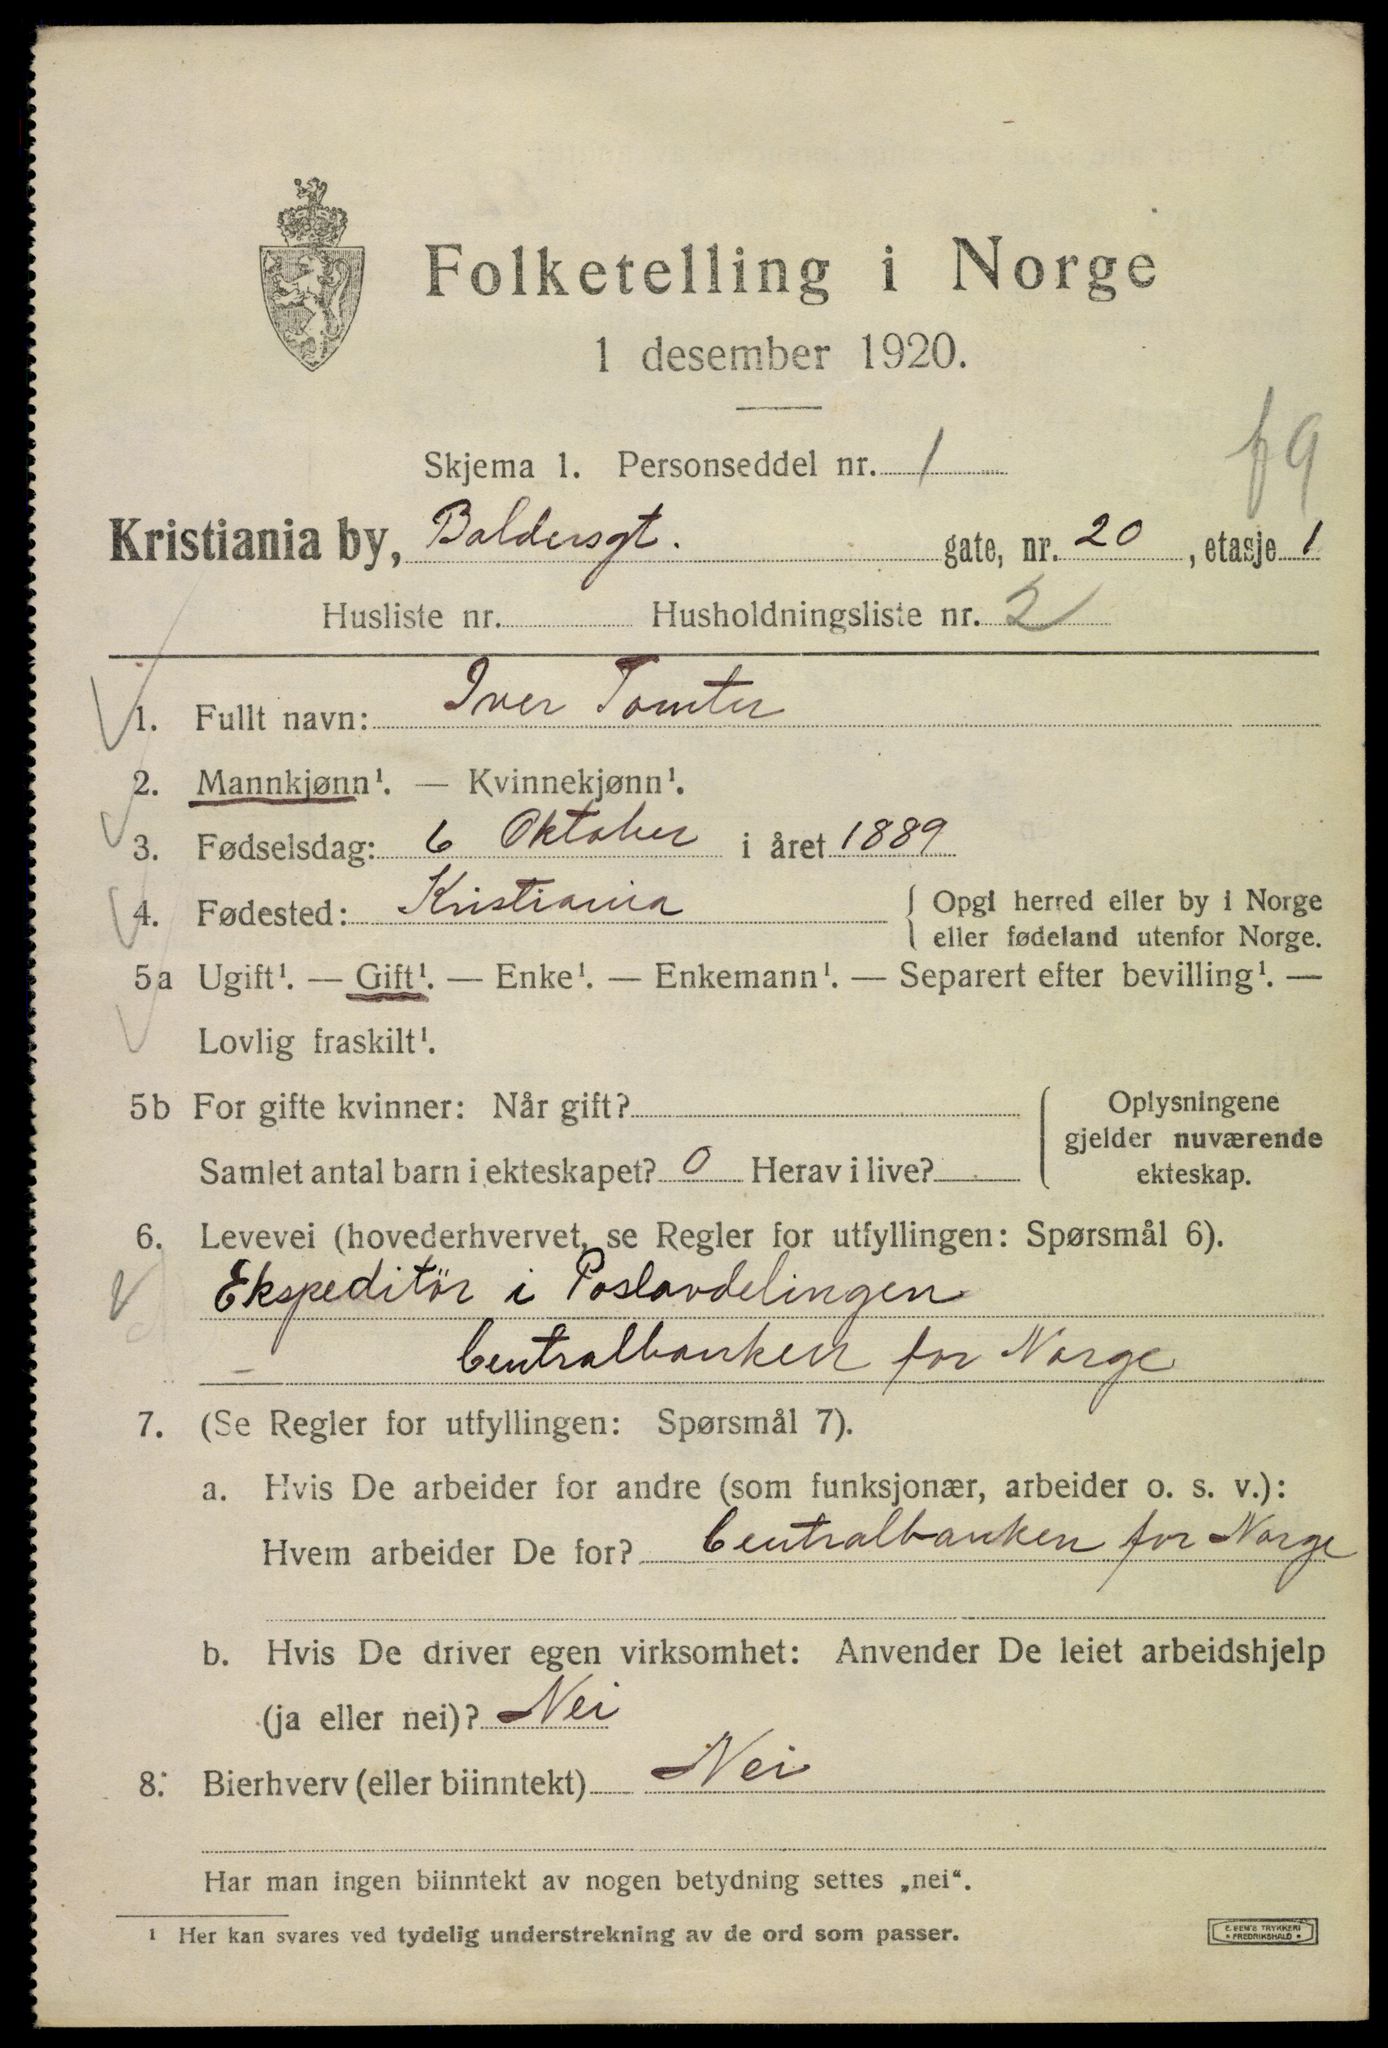 Folketelling i Norge
1 desember 1920.
Skjema 1. Personseddel nr. 1
f 9
Kristiania by, Baldersgt. gate, nr. 20, etasje 1
Husliste nr. Husholdningsliste nr. 2
1. Fullt navn: Iver Tomter
2. Mannkjønn¹. — Kvinnekjønn¹.
3. Fødselsdag: 6 Oktober i året 1889
4. Fødested: Kristiania { Opgi herred eller by i Norge
eller fødeland utenfor Norge.
5a Ugift¹. — Gift¹. — Enke¹. — Enkemann¹. — Separert efter bevilling¹. —
Lovlig fraskilt¹.
5b For gifte kvinner: Når gift? { Oplysningene
gjelder nuværende
Samlet antal barn i ekteskapet? 0 Herav i live? ekteskap.
6. Levevei (hovederhvervet, se Regler for utfyllingen: Spørsmål 6).
Ekspeditör i Postavdelingen
Centralbanken for Norge
7. (Se Regler for utfyllingen: Spørsmål 7).
a. Hvis De arbeider for andre (som funksjonær, arbeider o. s. v.):
Hvem arbeider De for? Centralbanken for Norge
b. Hvis De driver egen virksomhet: Anvender De leiet arbeidshjelp
(ja eller nei)? Nei
8. Bierhverv (eller biinntekt) Nei
Har man ingen biinntekt av nogen betydning settes „nei“.
¹ Her kan svares ved tydelig understrekning av de ord som passer.
E. SEM'S TRYKKERI
• FREDRIKSHALD •